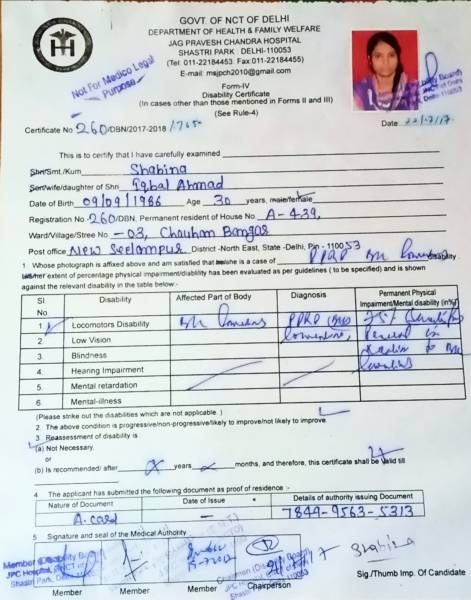 GOVT. OF NCT OF DELHI
DEPARTMENT OF HEALTH & FAMILY WELFARE
JAG PRAVESH CHANDRA HOSPITAL
SHASTRI PARK DELHI-110053
(Tel. 011-22184453 Fax:011-22184455)
E-mail: msjpch2010@gmail.com
Not For Medico Legal
Purpose
Form-IV
Disability Certificate
(In cases other than those mentioned in Forms II and III)
(See Rule-4)
Certificate No. 260/DBN/2017-2018
Date 22/7/17
This is to certify that I have carefully examined
Shri/Smt./Kum Shabina
Son/wife/daughter of Shri Iqbal Ahmad
Date of Birth 09/09/1986 Age 30 years, male/female
Registration No. 260/DBN, Permanent resident of House No. A-439,
Ward/Village/Stree No. -03, Chauhan Bangar
Post office New Seelampur District -North East, State -Delhi, Pin - 110053
1 Whose photograph is affixed above and am satisfied that he/she is a case of PPRP disability.
his/her extent of percentage physical impairment/diability has been evaluated as per guidelines ( to be specified) and is shown
against the relevant disability in the table below:-
Sl. No. Disability Affected Part of Body Diagnosis Permanent Physical Impairment/Mental disability (in%)
1 Locomotors Disability PPRP 75%
2. Low Vision
3. Blindness
4. Hearing Impairment
5. Mental retardation
6. Mental-illness
(Please strike out the disabilities which are not applicable. )
2. The above condition is progressive/non-progressive/likely to improve/not likely to improve.
3. Reassessment of disability is
(a) Not Necessary.
or
(b) Is recommended/ after x years x months, and therefore, this certificate shall be valid till
4 The applicant has submitted the following document as proof of residence :-
Nature of Document Date of Issue Details of authority issuing Document
A. card – 7849-9563-5313
5 Signature and seal of the Medical Authority
Member (Disability Board)
JPC Hospital, Govt. of NCT of
Shastri Park, Delhi
Chairman (Disability Board)
Shabina
Member Member Member Chairperson Sig./Thumb Imp. Of Candidate